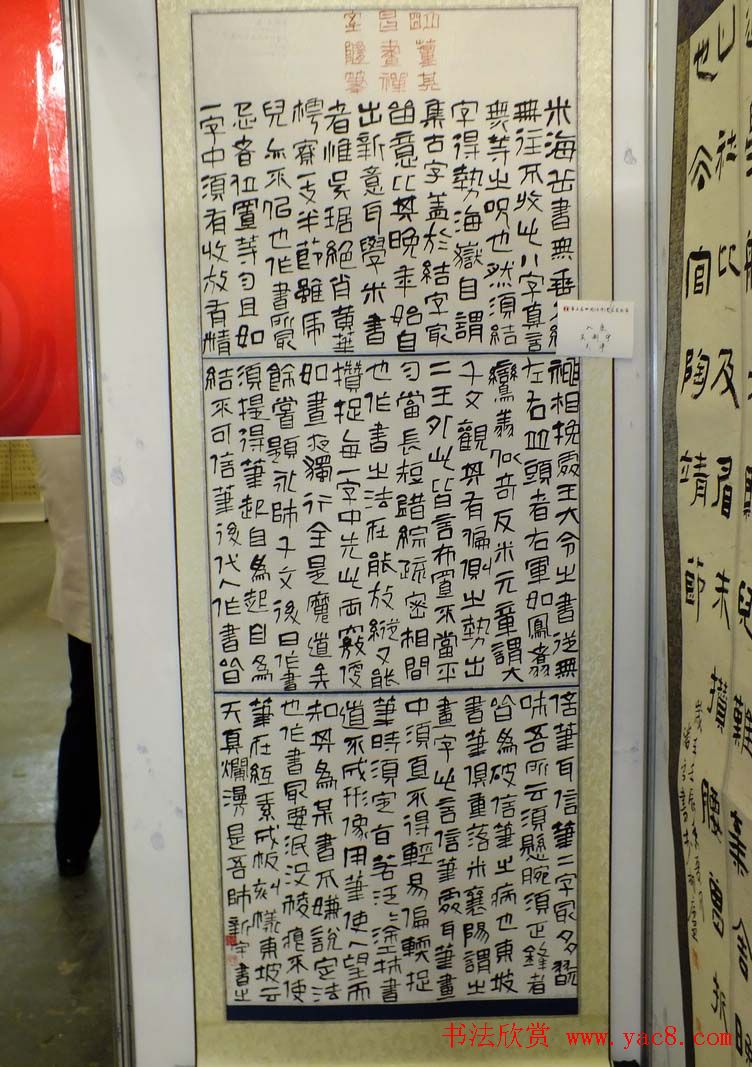 明董其
昌畫禪
室隨筆
米海岳書無垂
無往不收此八字真言
無等之呪也然須結
字得勢海嶽自謂
集古字蓋於結字最
留意比其晚年始自
出新意耳學米書
者惟吳琚絕肖黃華
樗寮一支半節雖虎
兒亦不似也作書所最
忌者位置等勻且如
一字中須有收放有精
神相挽處王大令之書從無
左右並頭者右軍如鳳翥
鸞翔似奇反米元章謂大
千文觀其有偏側之勢出
二王外此皆言布置不當平
勻當長短錯綜疏密相間
也作書之法在能放縱又能
攢捉每一字中失此兩竅便
如晝夜獨行全是魔道矣
餘嘗題永師千文後曰作書
須提得筆起自為起自為
結不可信筆後代人作書皆
信筆耳信筆二字最多翫
味吾所云須懸腕須正鋒者
皆為破信筆之病也東坡
書筆俱重落米襄陽謂之
畫字此言信筆處耳筆畫
中須直不得輕易偏軟捉
筆時須定有若泛泛塗抹書
道不成形像用筆使人望而
知其為某書不嫌說定法
也作書最要泯沒棱痕不使
筆在紅素成板刻樣東坡云
天真爛漫是吾師新宇書之
官陶靖節
书法欣赏 www.yac8.com